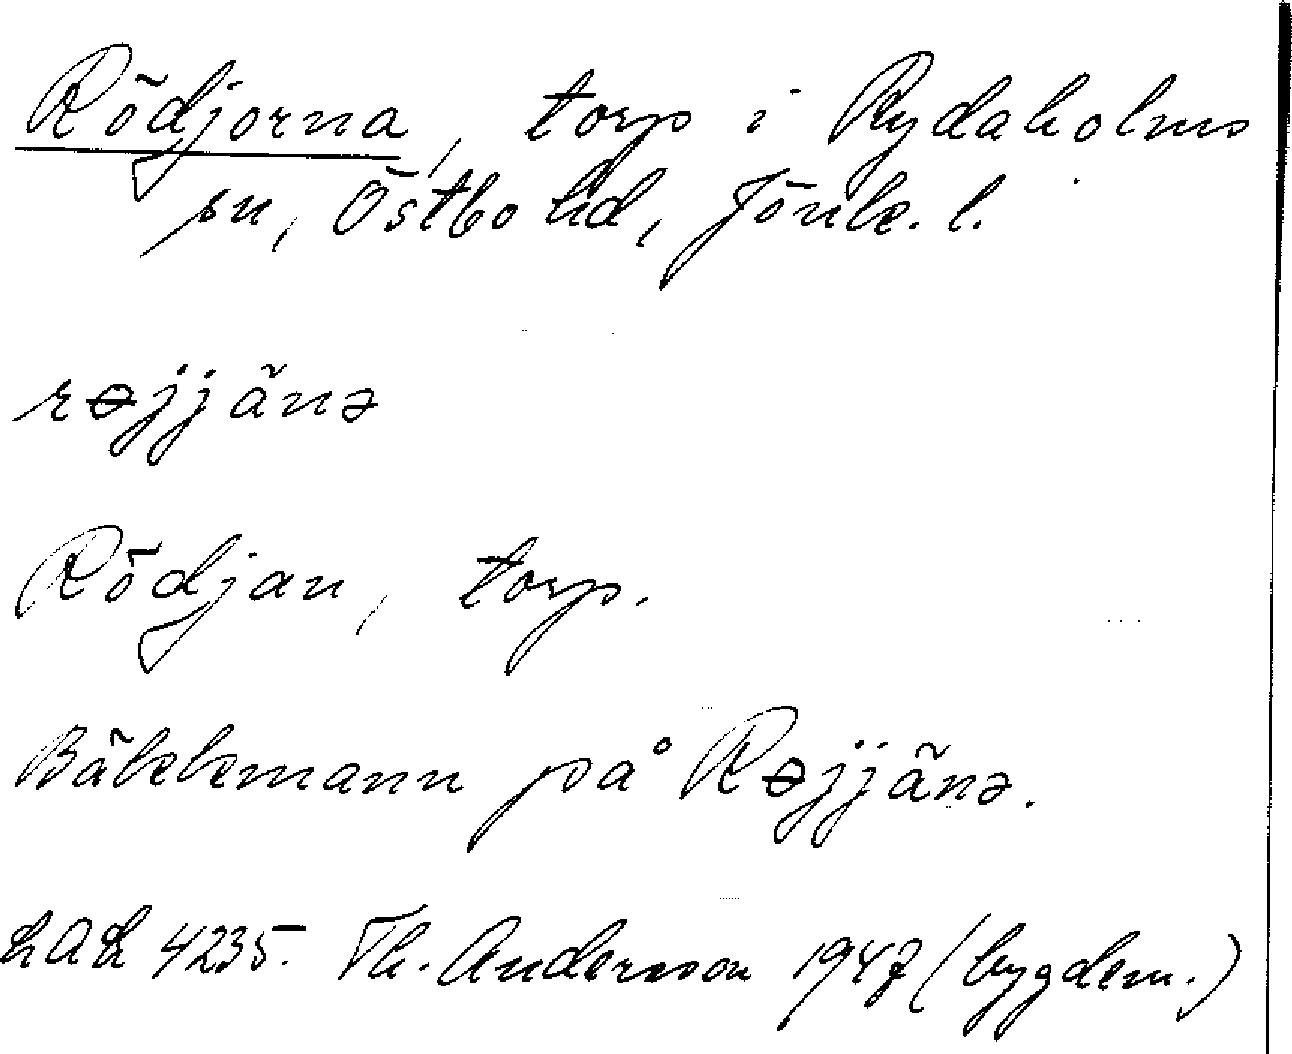 Rödjorna, torp i Rydaholms
sn, Östbo hd, Jönk. l.
rɵjjänə
Rödjan, torp.
Bäckmann på Rɵjjänə.
LAL 4235. Th. Andersson 1947 (bygdem.)